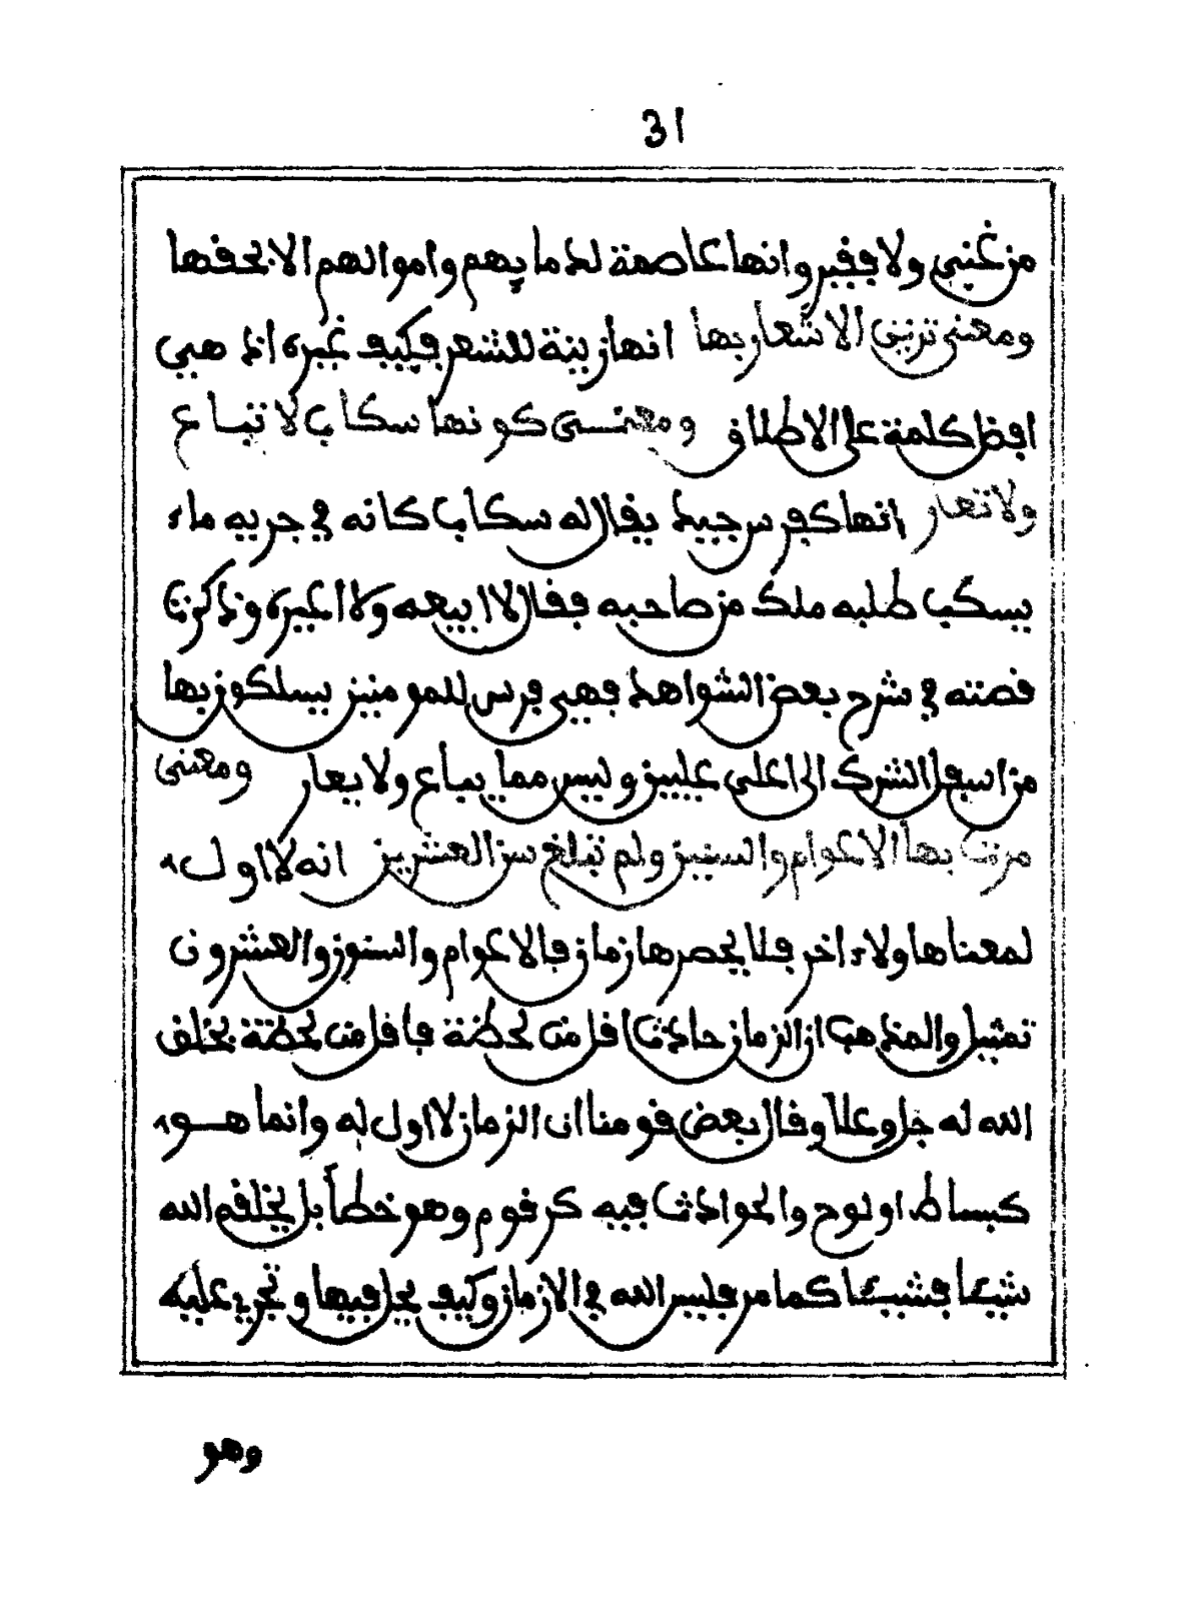 31
من غني ولا فقير وانها عاصمة لدمايهم واموالهم الا بحقها
ومعنى تزين الاشعار بها انها زينة للشعر فكيف غيره اذ هي
افضل كلمة على الاطلاق ومعنى كونها سكاب لا تباع
ولا تعار انها كفرس جيد يقال له سكاب كانه في جريه ماء
يسكب طلبه ملك من صاحبه فقال لا ابيعه ولا اعيره وذكرت
قصته في شرح بعض الشواهد فهي فرس للمومنين يسلكون بها
من اسفل الشرك الى اعلى عليين وليس مما يباع ولا يعار ومعنى
مرت بها الاعوام والسنين ولم تبلغ سن العشرين انه لا اول
لمعناها ولا ءاخر فلا يحصرها زمان فالاعوام والسنون والعشرون
تمثيل والمذهب ان الزمان حادث اقل من لحظة فاقل من لحظة بخلق
الله له جل وعلا وقال بعض قومنا ان الزمان لا اول له وانما هو
كبساط او لوح والحوادث فيه كرقوم وهو خطأ بل يخلقه الله
شيئا فشيئا كما مر فليس الله في الازمان وكيف يحل فيها وتجري عليه
وهو